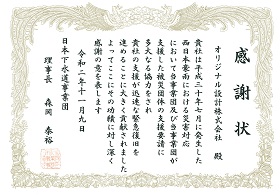 感謝状
オリジナル設計株式会社 殿
貴社は平成三十年七月に発生した
西日本豪雨における災害対応
において当事業団及び当事業団が
支援した被災団体の支援要請に
多大なる協力をされ
貴社の支援が迅速な緊急復旧を
進めることに大きく貢献されました
よってここにその功績に対し深く
感謝の意を表します
令和二年十一月九日
日本下水道事業団
理事長 森岡 泰裕